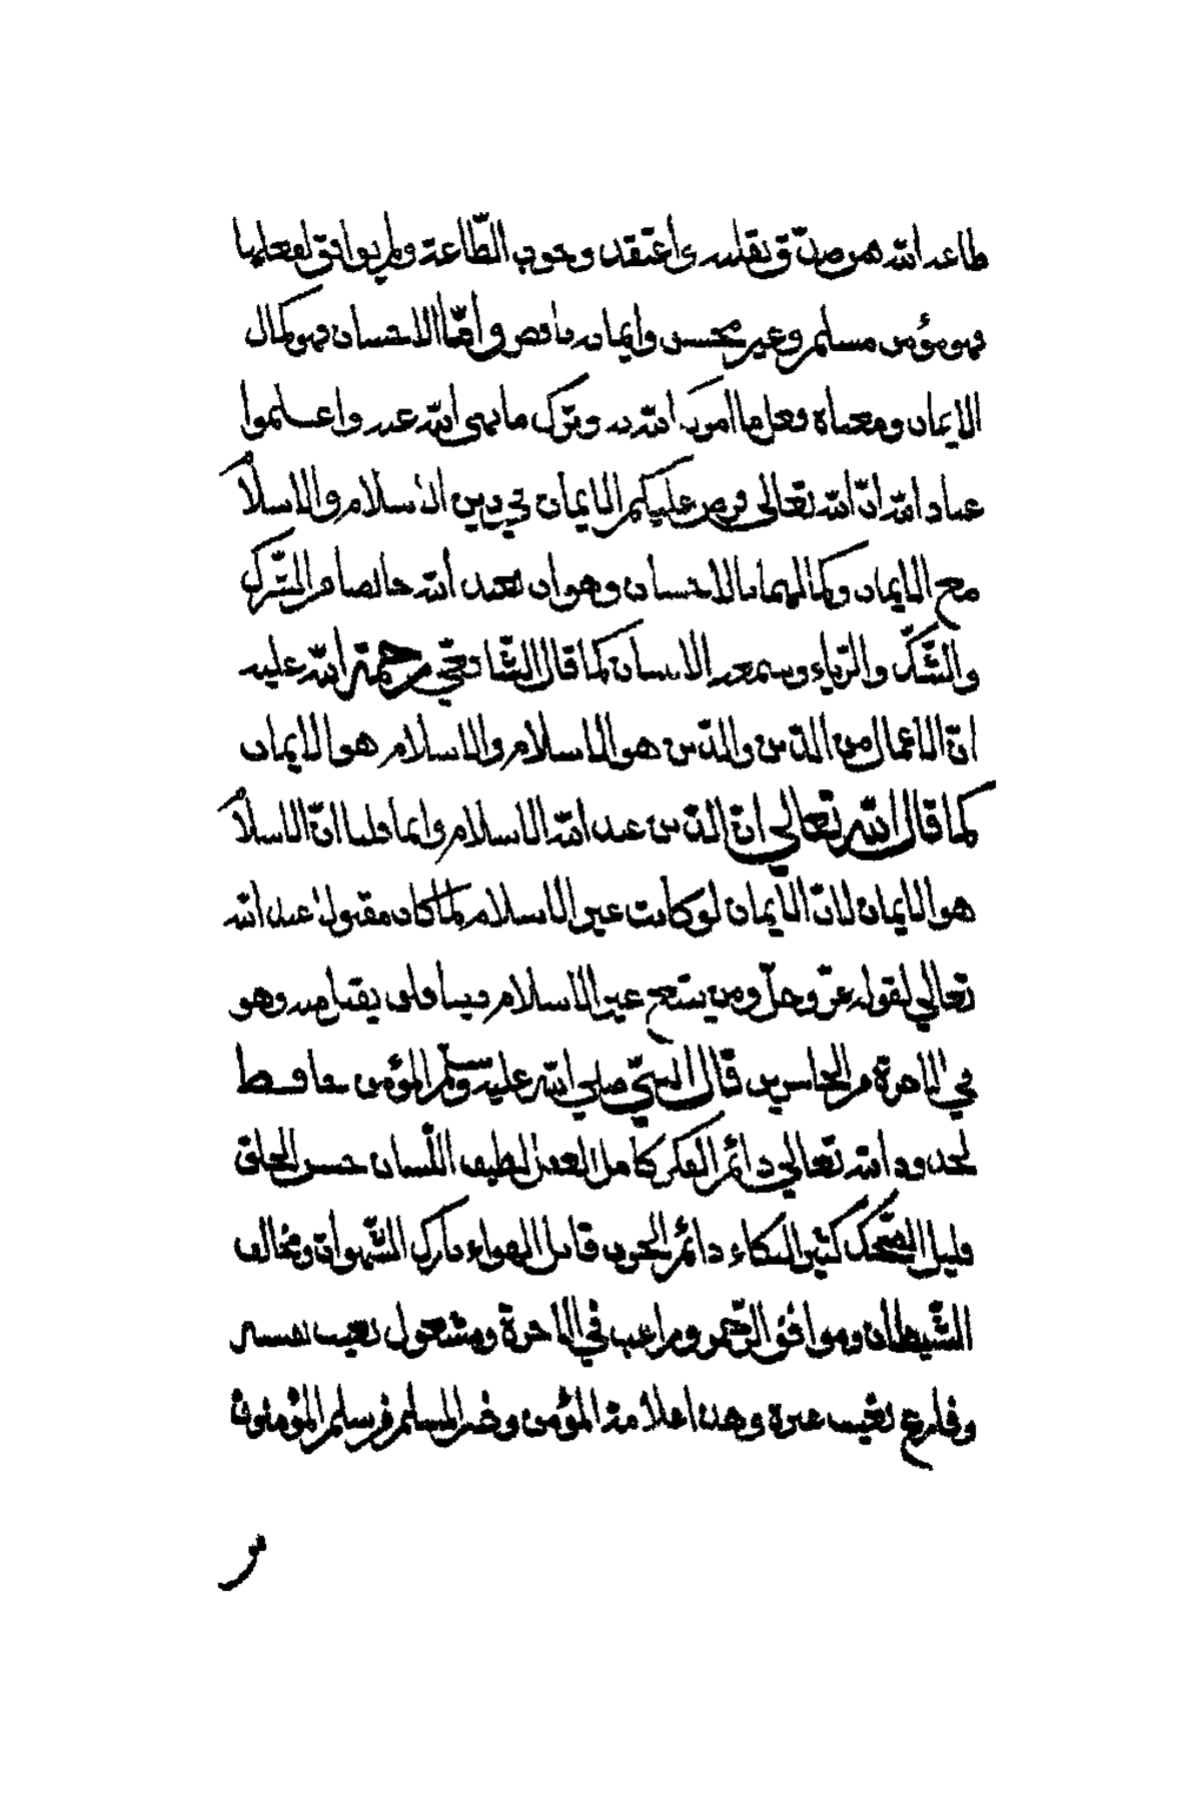 طاعة الله فمن صدّق بقلبه واعتقد وجوب الطّاعة ولم يوافق لفعلها
فهو مؤمن مسلم وغير محسن وايمانه ناقص وامّا الاحسان فهو كمال
الايمان ومعناه فعل ما امر الله به وترك ما نهى الله عنه واعلموا
عباد الله انّ الله تعالى فرض عليكم الايمان في دين الاسلام والاسلام
مع الايمان وكمالهما بالاحسان وهو ان تعبد الله خالصا من الشّرك
والشّكّ والرّياء وسمعة الانسان كما قال الشّافعي رحمة الله عليه
انّ الاعمال من الدّين والدّين هو الاسلام والاسلام هو الايمان
كما قال الله تعالى انّ الدّين عند الله الاسلام وانما قلنا انّ الاسلام
هو الايمان لانّ الايمان لو كانت غير الاسلام لما كان مقبولا عند الله
تعالي لقوله عزّ وجلّ ومن يبتغ غير الاسلام دينا فلن يقبل منه وهو
في الاخرة من الخاسرين قال النبيّ صلي الله عليه وسلّم المؤمن حافظ
لحدود الله تعالي دائم الفكر كامل العقل لطيف اللّسان حسن الخلق
قليل الضّحك كثير البكاء دائم الحزن قاتل الهواء تارك الشّهوات ومخالف
الشّيطان وموافق الرّحمن وراغب في الاخرة ومشغول بعيب نفسه
وفارغ بعيب غيره وهذا علامة المؤمن وخير المسلم من سلم المؤمنون
من